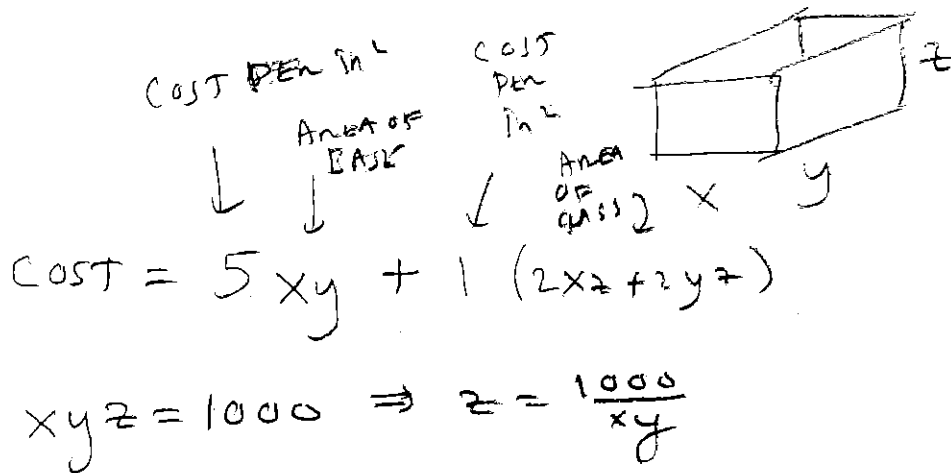 COST PER in²
AREA OF
BASE
COST
PER
in²
AREA
OF
GLASS
z
x y
COST = 5xy + 1 (2xz + 2yz)
xyz = 1000 ⇒ z = 1000/xy